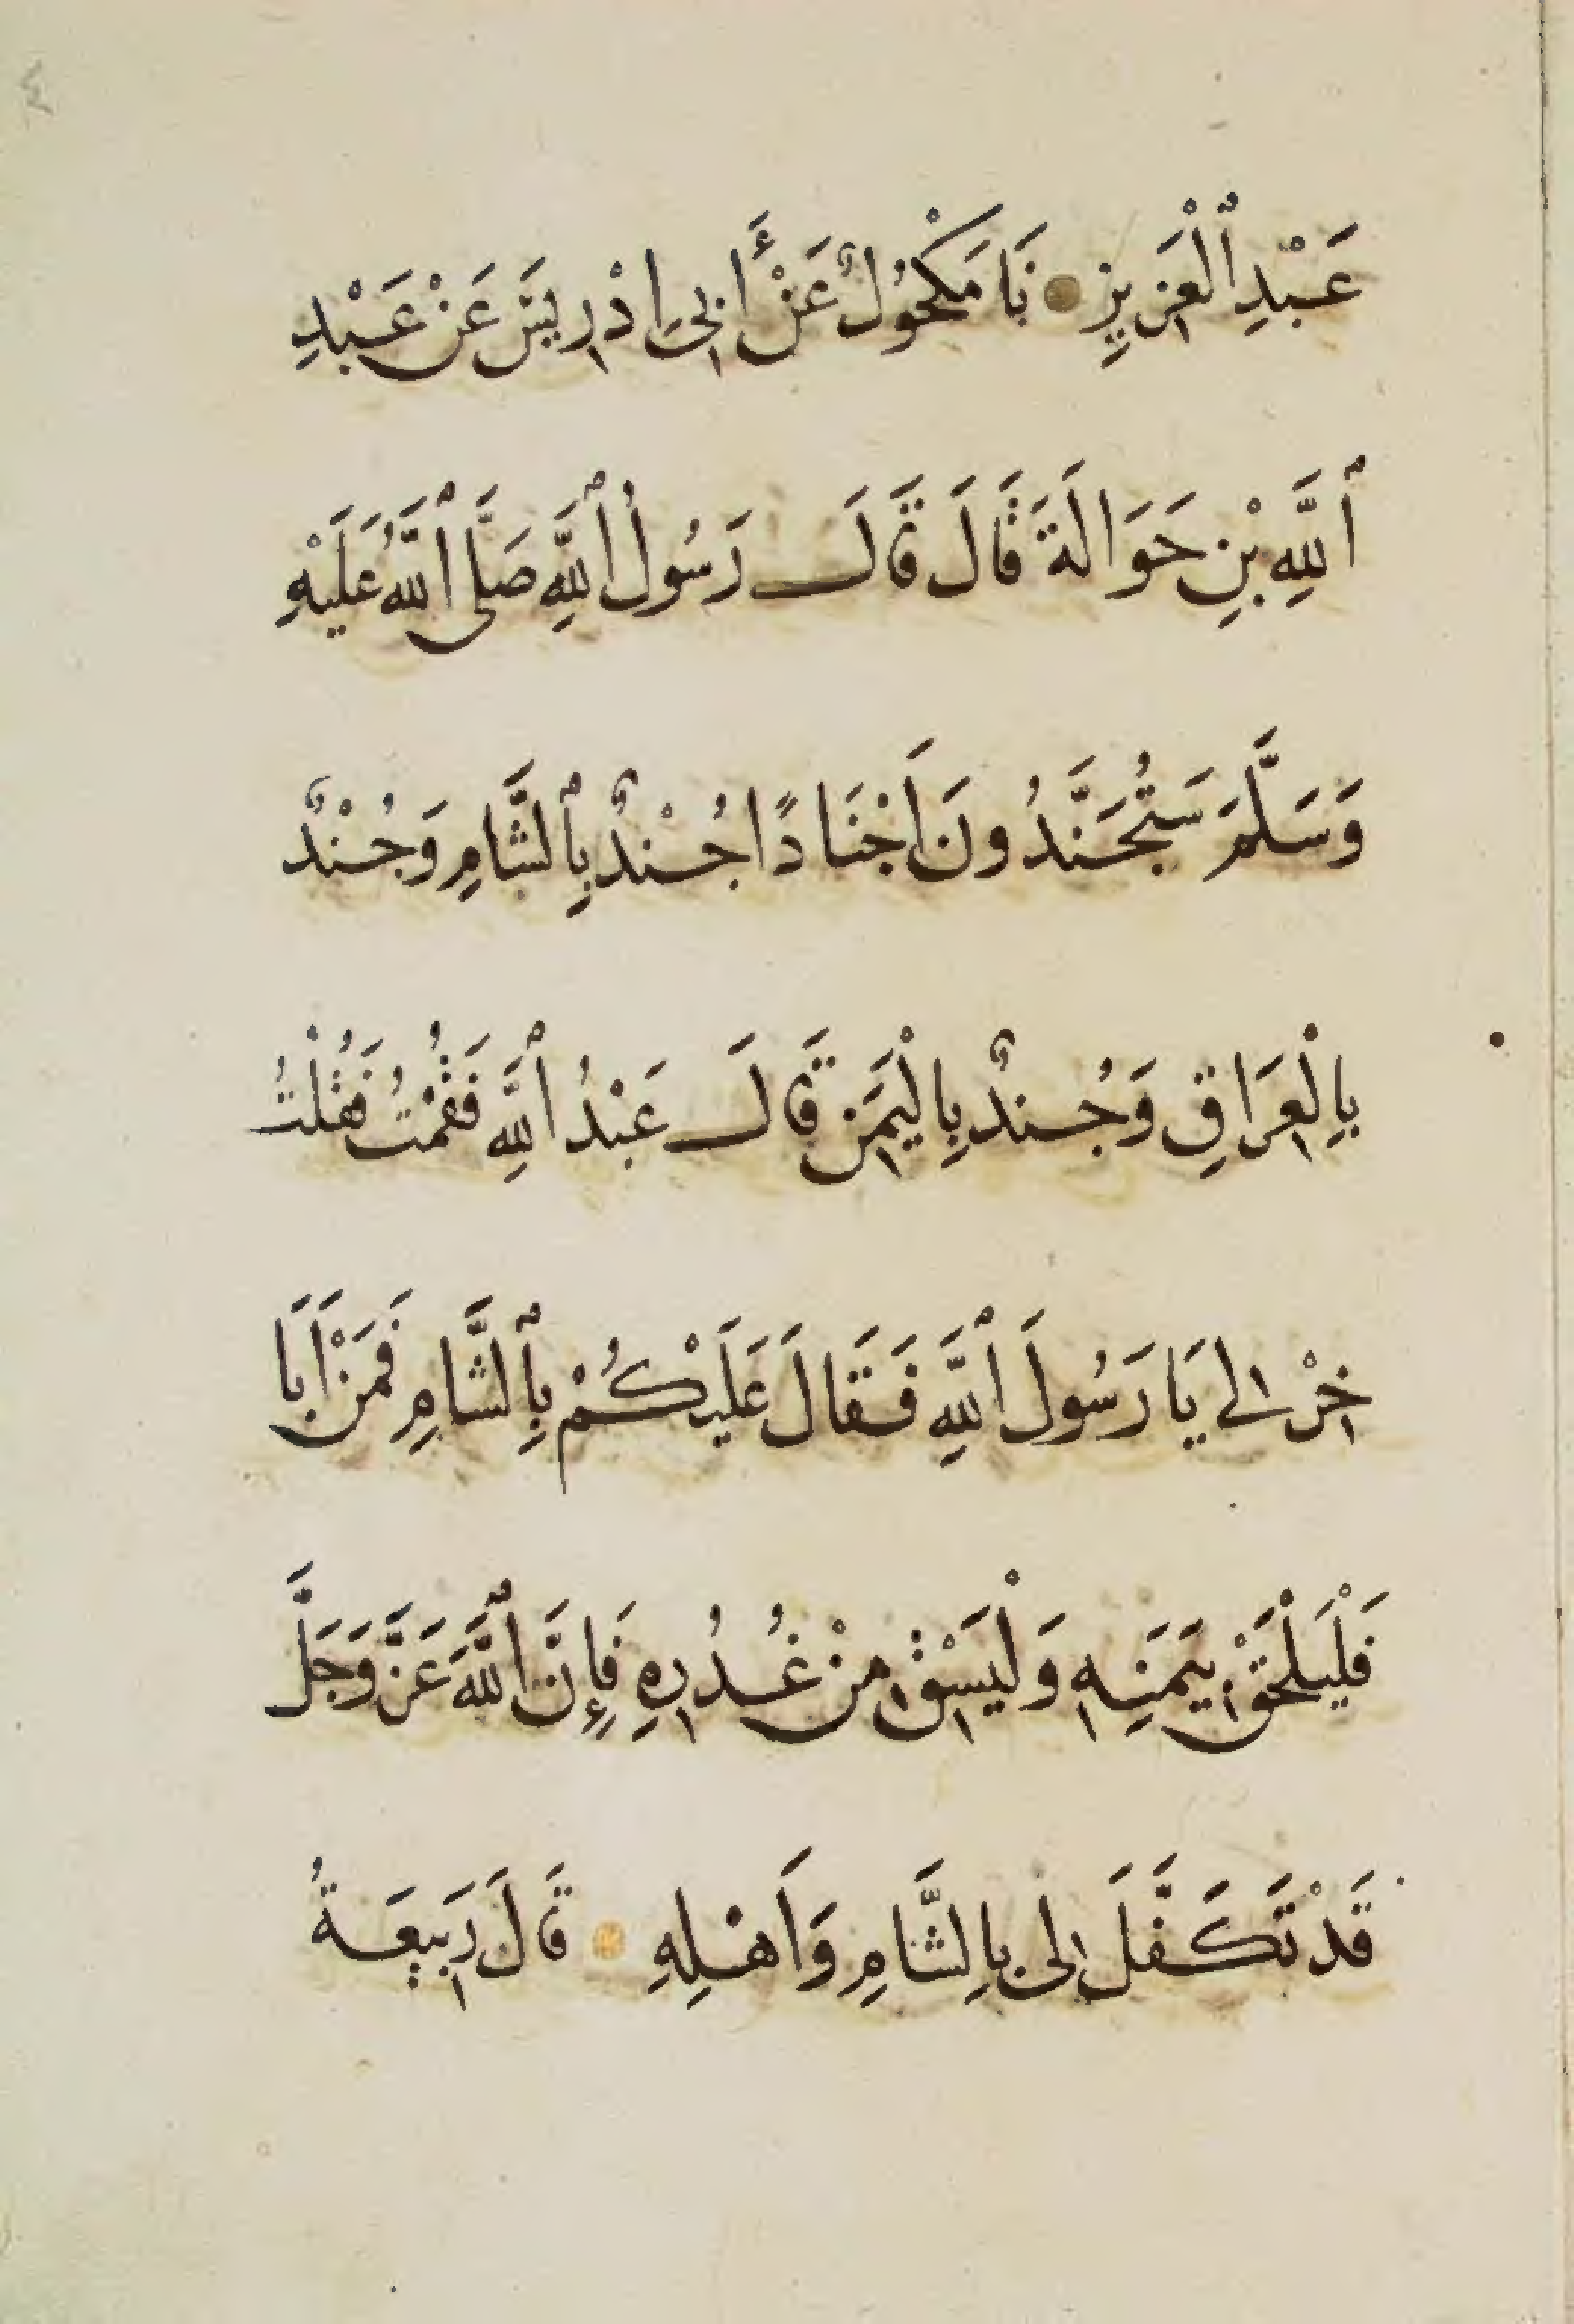 ٤
عَبْدِ ٱلْعَزِيزِ نَا مَكْحُولٌ عَنْ أَبِي اِدْرِيسَ عَنْ عَبْدِ
ٱللَّهِ بْنِ حَوَالَةَ قَالَ قَالَ رَسُولُ ٱللَّهِ صَلَّى ٱللَّهُ عَلَيْهِ
وَسَلَّمَ سَتُجَنَّدُونَ اَجْنَادًا جُنْدٌ بِٱلشَّامِ وَجُنْدٌ
بِالْعِرَاقِ وَجُندٌ بِالْيَمَنِ قَالَ عَبْدُ ٱللَّهِ فَقُمْتُ فَقُلْتُ
خِرْ لِي يَا رَسُولَ ٱللَّهِ فَقَالَ عَلَيْكُمْ بِٱلشَّامِ فَمَنْ اَبَا
فَلْيَلْحَقْ بِيَمَنِهِ وَلْيَسْقِ مِنْ غُدُرِهِ فَإِنَّ ٱللَّهَ عَزَّ وَجَلَّ
قَدْ تَكَفَّلَ لِي بِالشَّامِ وَاَهْلِهِ قَالَ رَبِيعَةُ